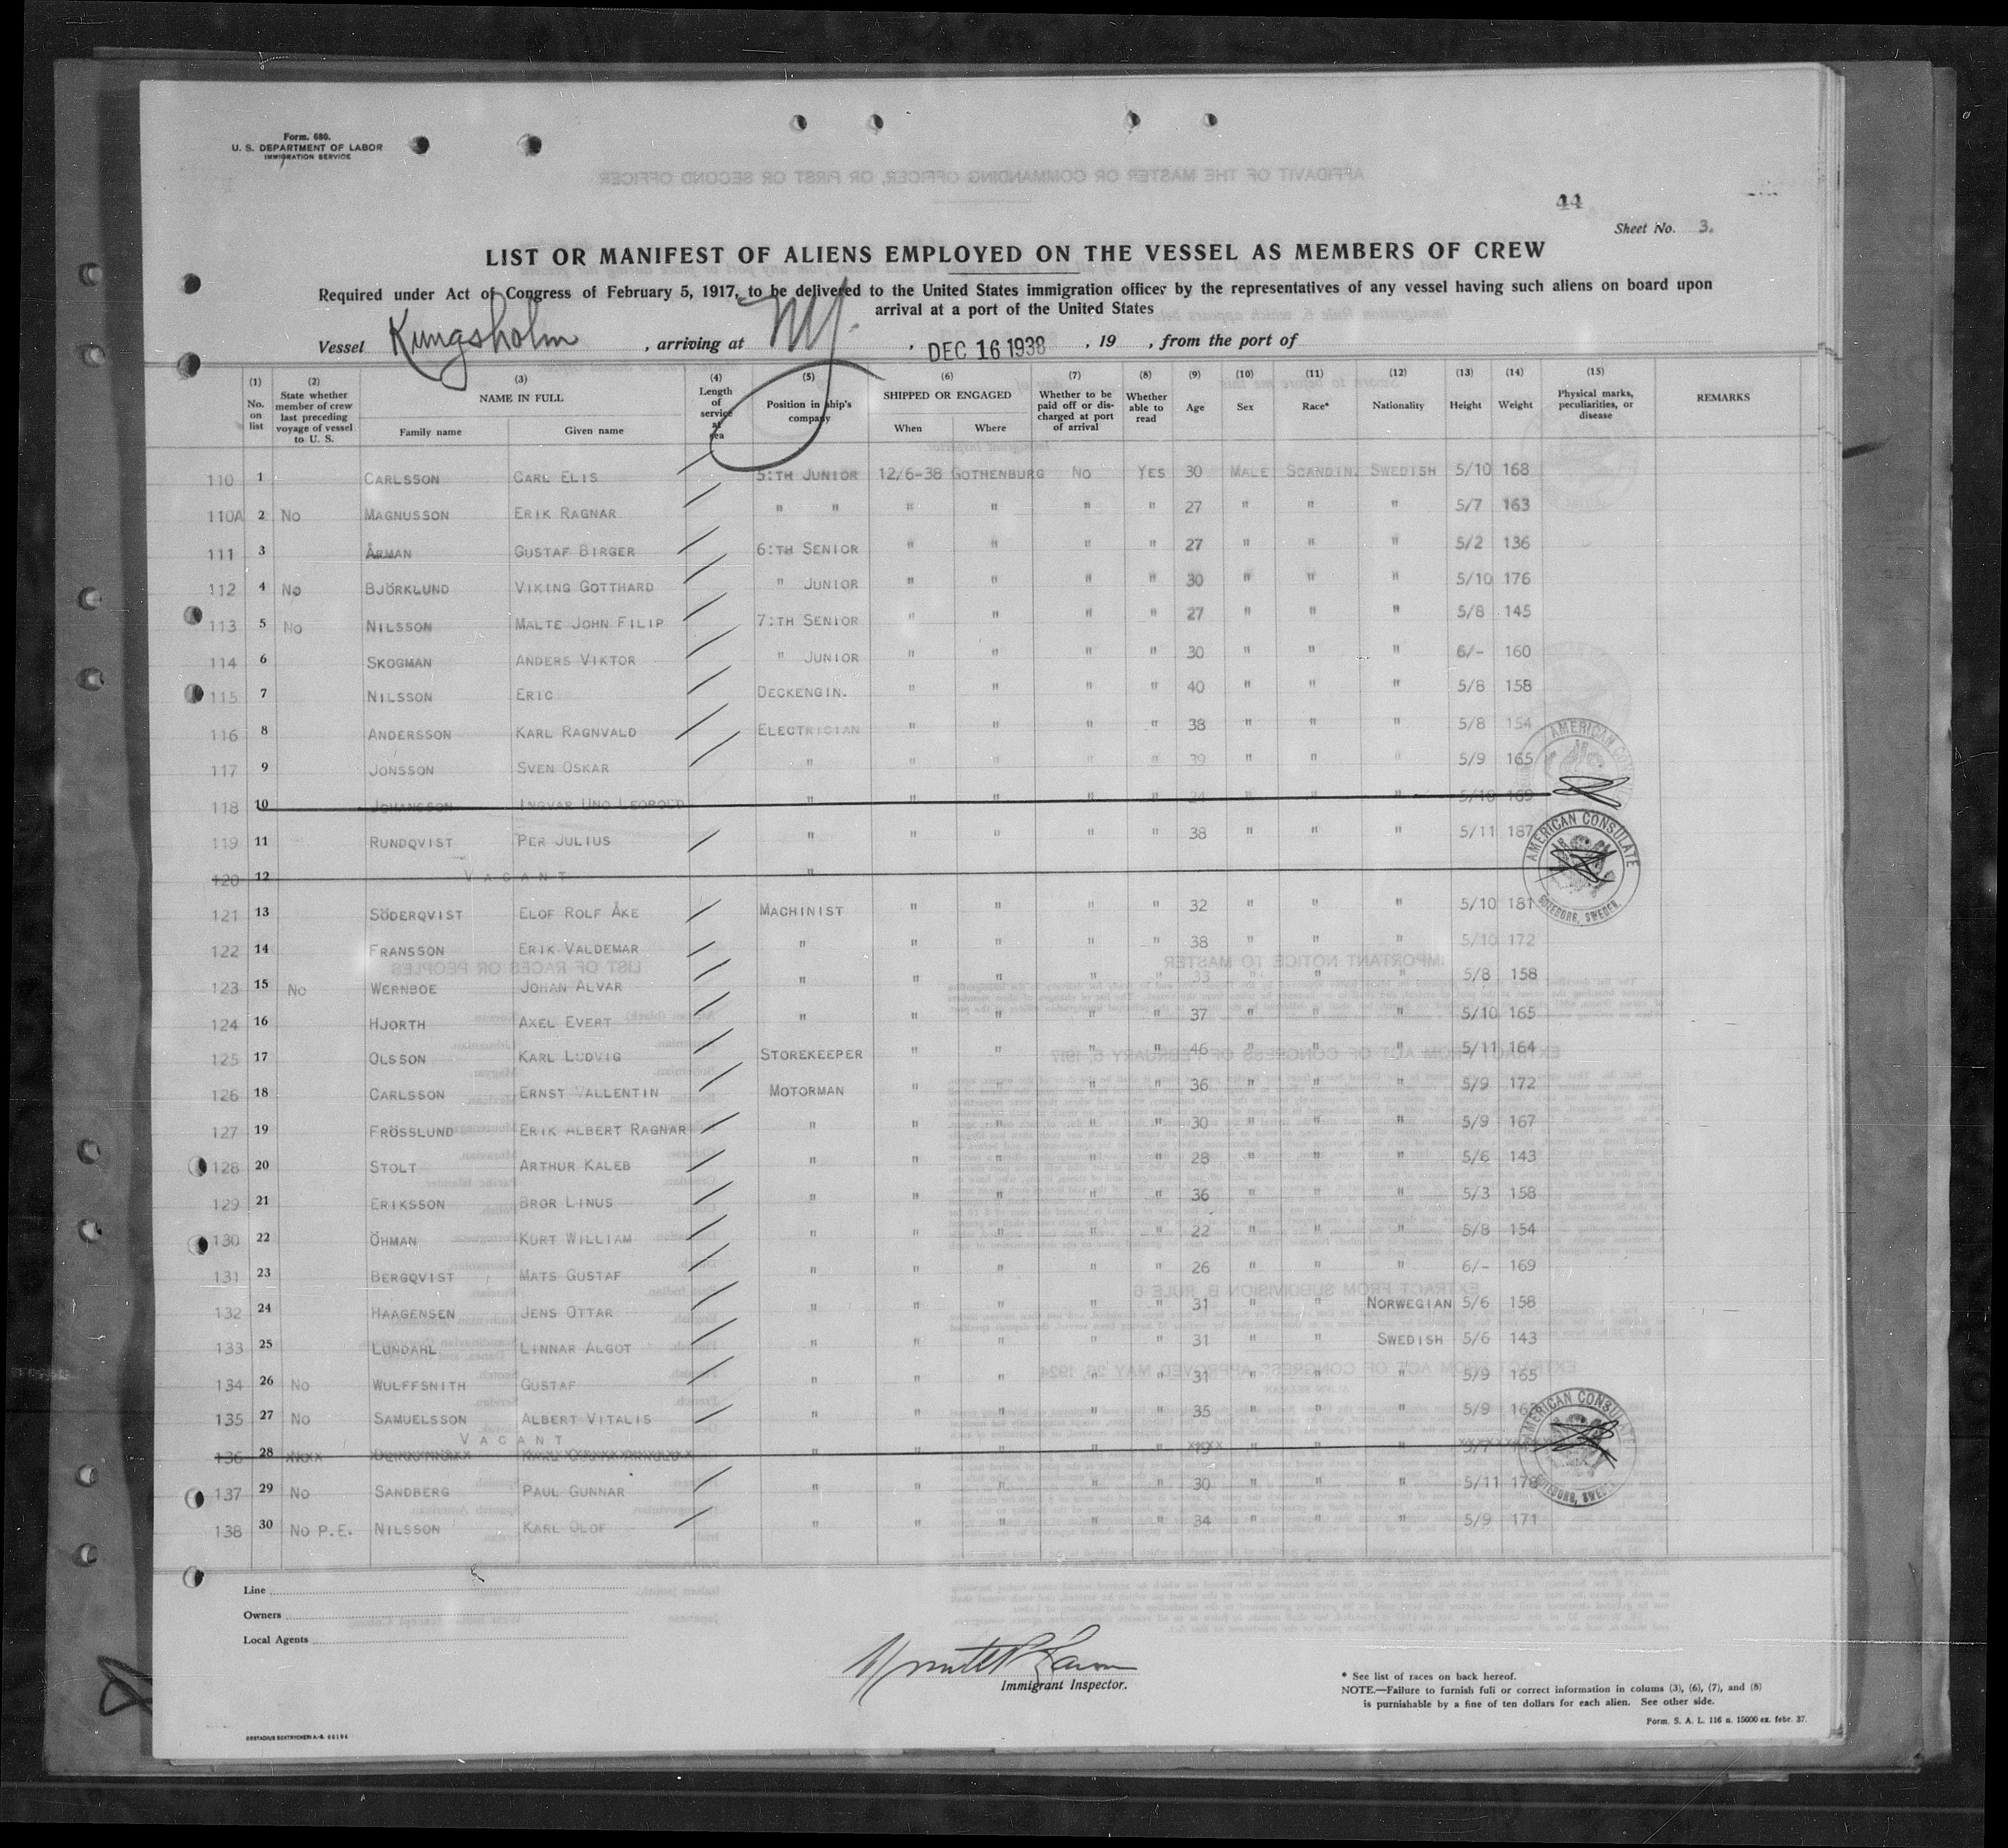 Form. 680.
U. S. DEPARTMENT OF LABOR
IMMIGRATION SERVICE
44
Sheet No. 3.
LIST OR MANIFEST OF ALIENS EMPLOYED ON THE VESSEL AS MEMBERS OF CREW
Required under Act of Congress of February 5, 1917, to be delivered to the United States immigration officer by the representatives of any vessel having such aliens on board upon
arrival at a port of the United States
Vessel Kungsholm , arriving at NY. , DEC 16 1938 , 19 , from the port of
(1) No. on list (2) State whether member of crew last preceding voyage of vessel to U. S. (3) NAME IN FULL Family name Given name (4) Length of service at sea (5) Position in ship's company (6) SHIPPED OR ENGAGED When Where (7) Whether to be paid off or discharged at port of arrival (8) Whether able to read (9) Age (10) Sex (11) Race* (12) Nationality (13) Height (14) Weight (15) Physical marks, peculiarities, or disease REMARKS
110 1 CARLSSON CARL ELIS 5:TH JUNIOR 12/6-38 GOTHENBURG NO YES 30 MALE SCANDIN. SWEDISH 5/10 168
110A 2 NO MAGNUSSON ERIK RAGNAR " " " " " " 27 " " " 5/7 163
111 3 ÅRMAN GUSTAF BIRGER 6:TH SENIOR " " " " 27 " " " 5/2 136
112 4 NO BJÖRKLUND VIKING GOTTHARD " JUNIOR " " " " 30 " " " 5/10 176
113 5 NO NILSSON MALTE JOHN FILIP 7:TH SENIOR " " " " 27 " " " 5/8 145
114 6 SKOGMAN ANDERS VIKTOR " JUNIOR " " " " 30 " " " 6/- 160
115 7 NILSSON ERIC DECKENGIN. " " " " 40 " " " 5/8 158
116 8 ANDERSSON KARL RAGNVALD ELECTRICIAN " " " " 38 " " " 5/8 154
117 9 JONSSON SVEN OSKAR " " " " " 39 " " " 5/9 165
118 10 JOHANSSON INGVAR UNO LEOPOLD " " " " " 24 " " " 5/10 169
119 11 RUNDQVIST PER JULIUS " " " " " 38 " " " 5/11 187
120 12 VACANT "
121 13 SÖDERQVIST ELOF ROLF ÅKE MACHINIST " " " " 32 " " " 5/10 181
122 14 FRANSSON ERIK VALDEMAR " " " " " 38 " " " 5/10 172
123 15 NO WERNBOE JOHAN ALVAR " " " " " 33 " " " 5/8 158
124 16 HJORTH AXEL EVERT " " " " " 37 " " " 5/10 165
125 17 OLSSON KARL LUDVIG STOREKEEPER " " " " 46 " " " 5/11 164
126 18 CARLSSON ERNST VALLENTIN MOTORMAN " " " " 36 " " " 5/9 172
127 19 FRÖSSLUND ERIK ALBERT RAGNAR " " " " " 30 " " " 5/9 167
128 20 STOLT ARTHUR KALEB " " " " " 28 " " " 5/6 143
129 21 ERIKSSON BROR LINUS " " " " " 36 " " " 5/3 158
130 22 ÖHMAN KURT WILLIAM " " " " " 22 " " " 5/8 154
131 23 BERGQVIST MATS GUSTAF " " " " " 26 " " " 6/- 169
132 24 HAAGENSEN JENS OTTAR " " " " " 31 " " NORWEGIAN 5/6 158
133 25 LUNDAHL LINNAR ALGOT " " " " " 31 " " SWEDISH 5/6 143
134 26 NO WULFFSNITH GUSTAF " " " " " 31 " " " 5/9 165
135 27 NO SAMUELSSON ALBERT VITALIS " " " " " 35 " " " 5/9
136 28 VACANT " " " " " " " "
137 29 NO SANDBERG PAUL GUNNAR " " " " " 30 " " " 5/11 178
138 30 NO P.E. NILSSON KARL OLOF " " " " " 34 " " " 5/9 171
AMERICAN CONSULATE
GOTEBORG, SWEDEN.
AMERICAN CONSULATE
GOTEBORG, SWEDEN
Line
Owners
Local Agents
Immigrant Inspector.
* See list of races on back hereof.
NOTE.—Failure to furnish full or correct information in colums (3), (6), (7), and (8)
is punishable by a fine of ten dollars for each alien. See other side.
Form. S. A. L. 116 n. 15000 ex. febr. 37.